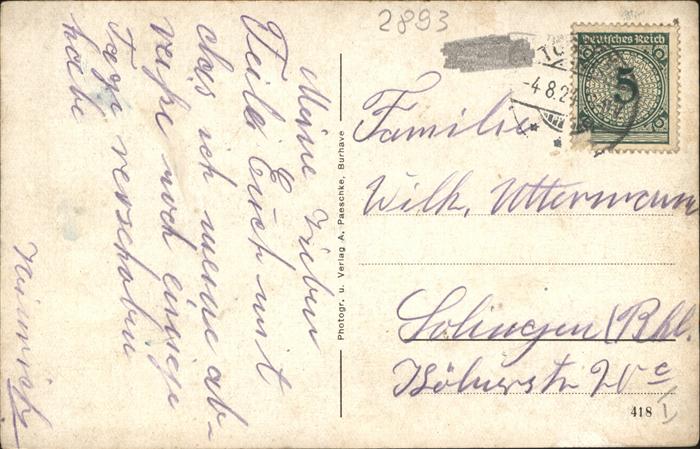 2893
Meine Lieben
Teile Euch mit
das ich meine ab-
reise noch einige
Tage verschoben
habe
Heinrich
Photogr. u. Verlag A. Paeschke, Burhave
Deutsches Reich
5
-4.8.24
Familie
Wilh. Uttermann
Solingen (Rhl.
Kölnerstr
418